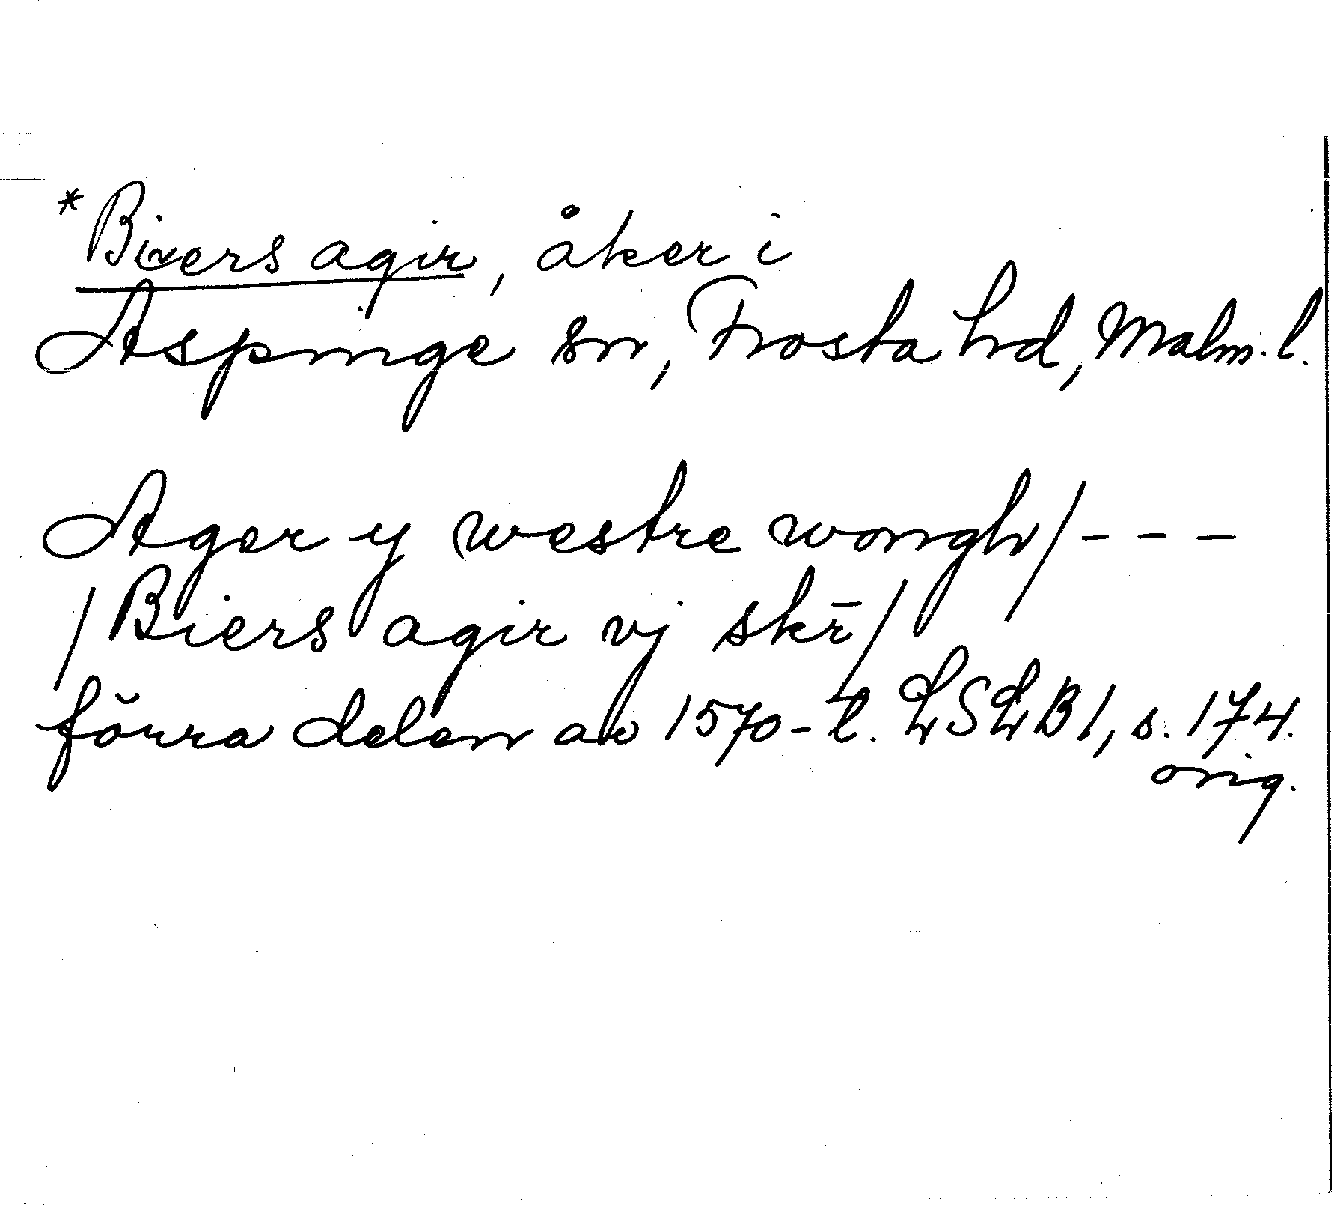 *Biers agir, åker i
Aspinge sn, Frosta hd, Malm. l.
Ager y westre wongh/---
/Biers agir vj skr̄/
förra delen av 1570-t. LSLB1, s. 174.
orig.